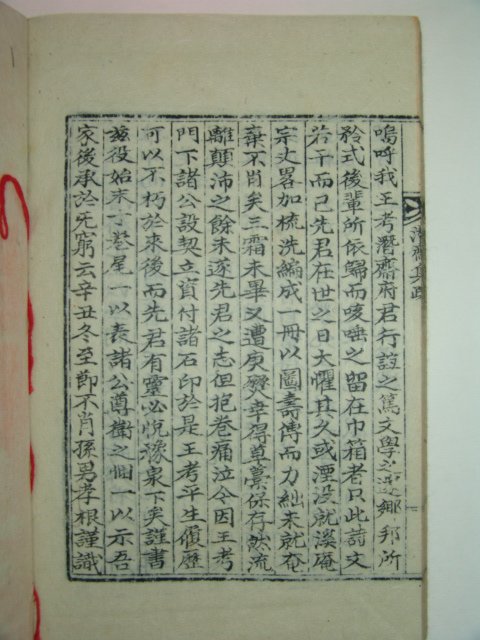 嗚呼我王考潛齋府君行誼之篤文學之邃鄕邦所
矜式後輩所依歸而咳唾之留在巾箱者只此詩文
若干而已先君在世之日大懼其久或湮沒就溪庵
宗丈畧加梳洗編成一冊以圖壽傳而力絀未就奄
棄不肖矣三霜未畢又遭庚燹幸得草藁保存然流
離顚沛之餘未遂先君之志但抱卷痛泣今因王考
門下諸公設契立資付諸石印於是王考平生履歷
可以不朽於來後而先君有靈必悅豫泉下矣謹書
玆役始末於卷尾一以表諸公尊衛之悃一以示吾
家後承於旡窮云辛丑冬至節不肖孫男孝根謹識
潛齋集跋